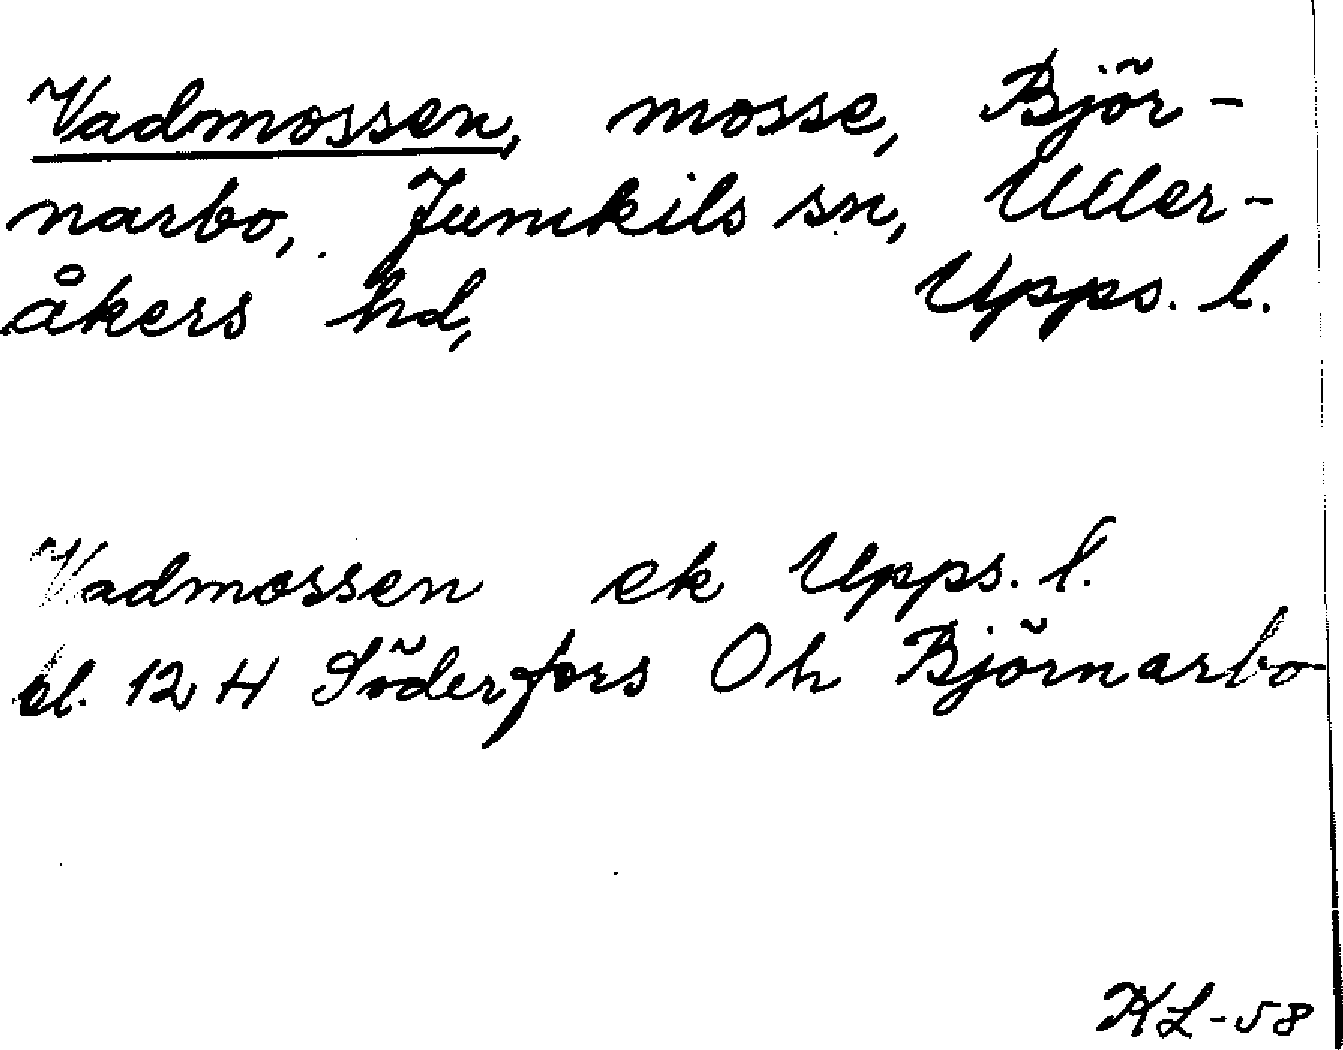 Vadmossen, mosse, Björ-
narbo, Jumkils sn, Uller-
åkers hd, Upps. l.
Vadmossen ek Upps. l.
bl. 12 H Söderfors Oh Björnarbo
KL-58